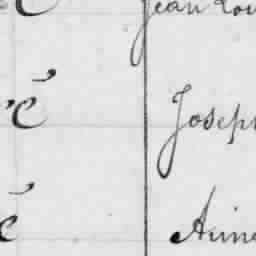 Jean Lou
é Joseph
é Aimé